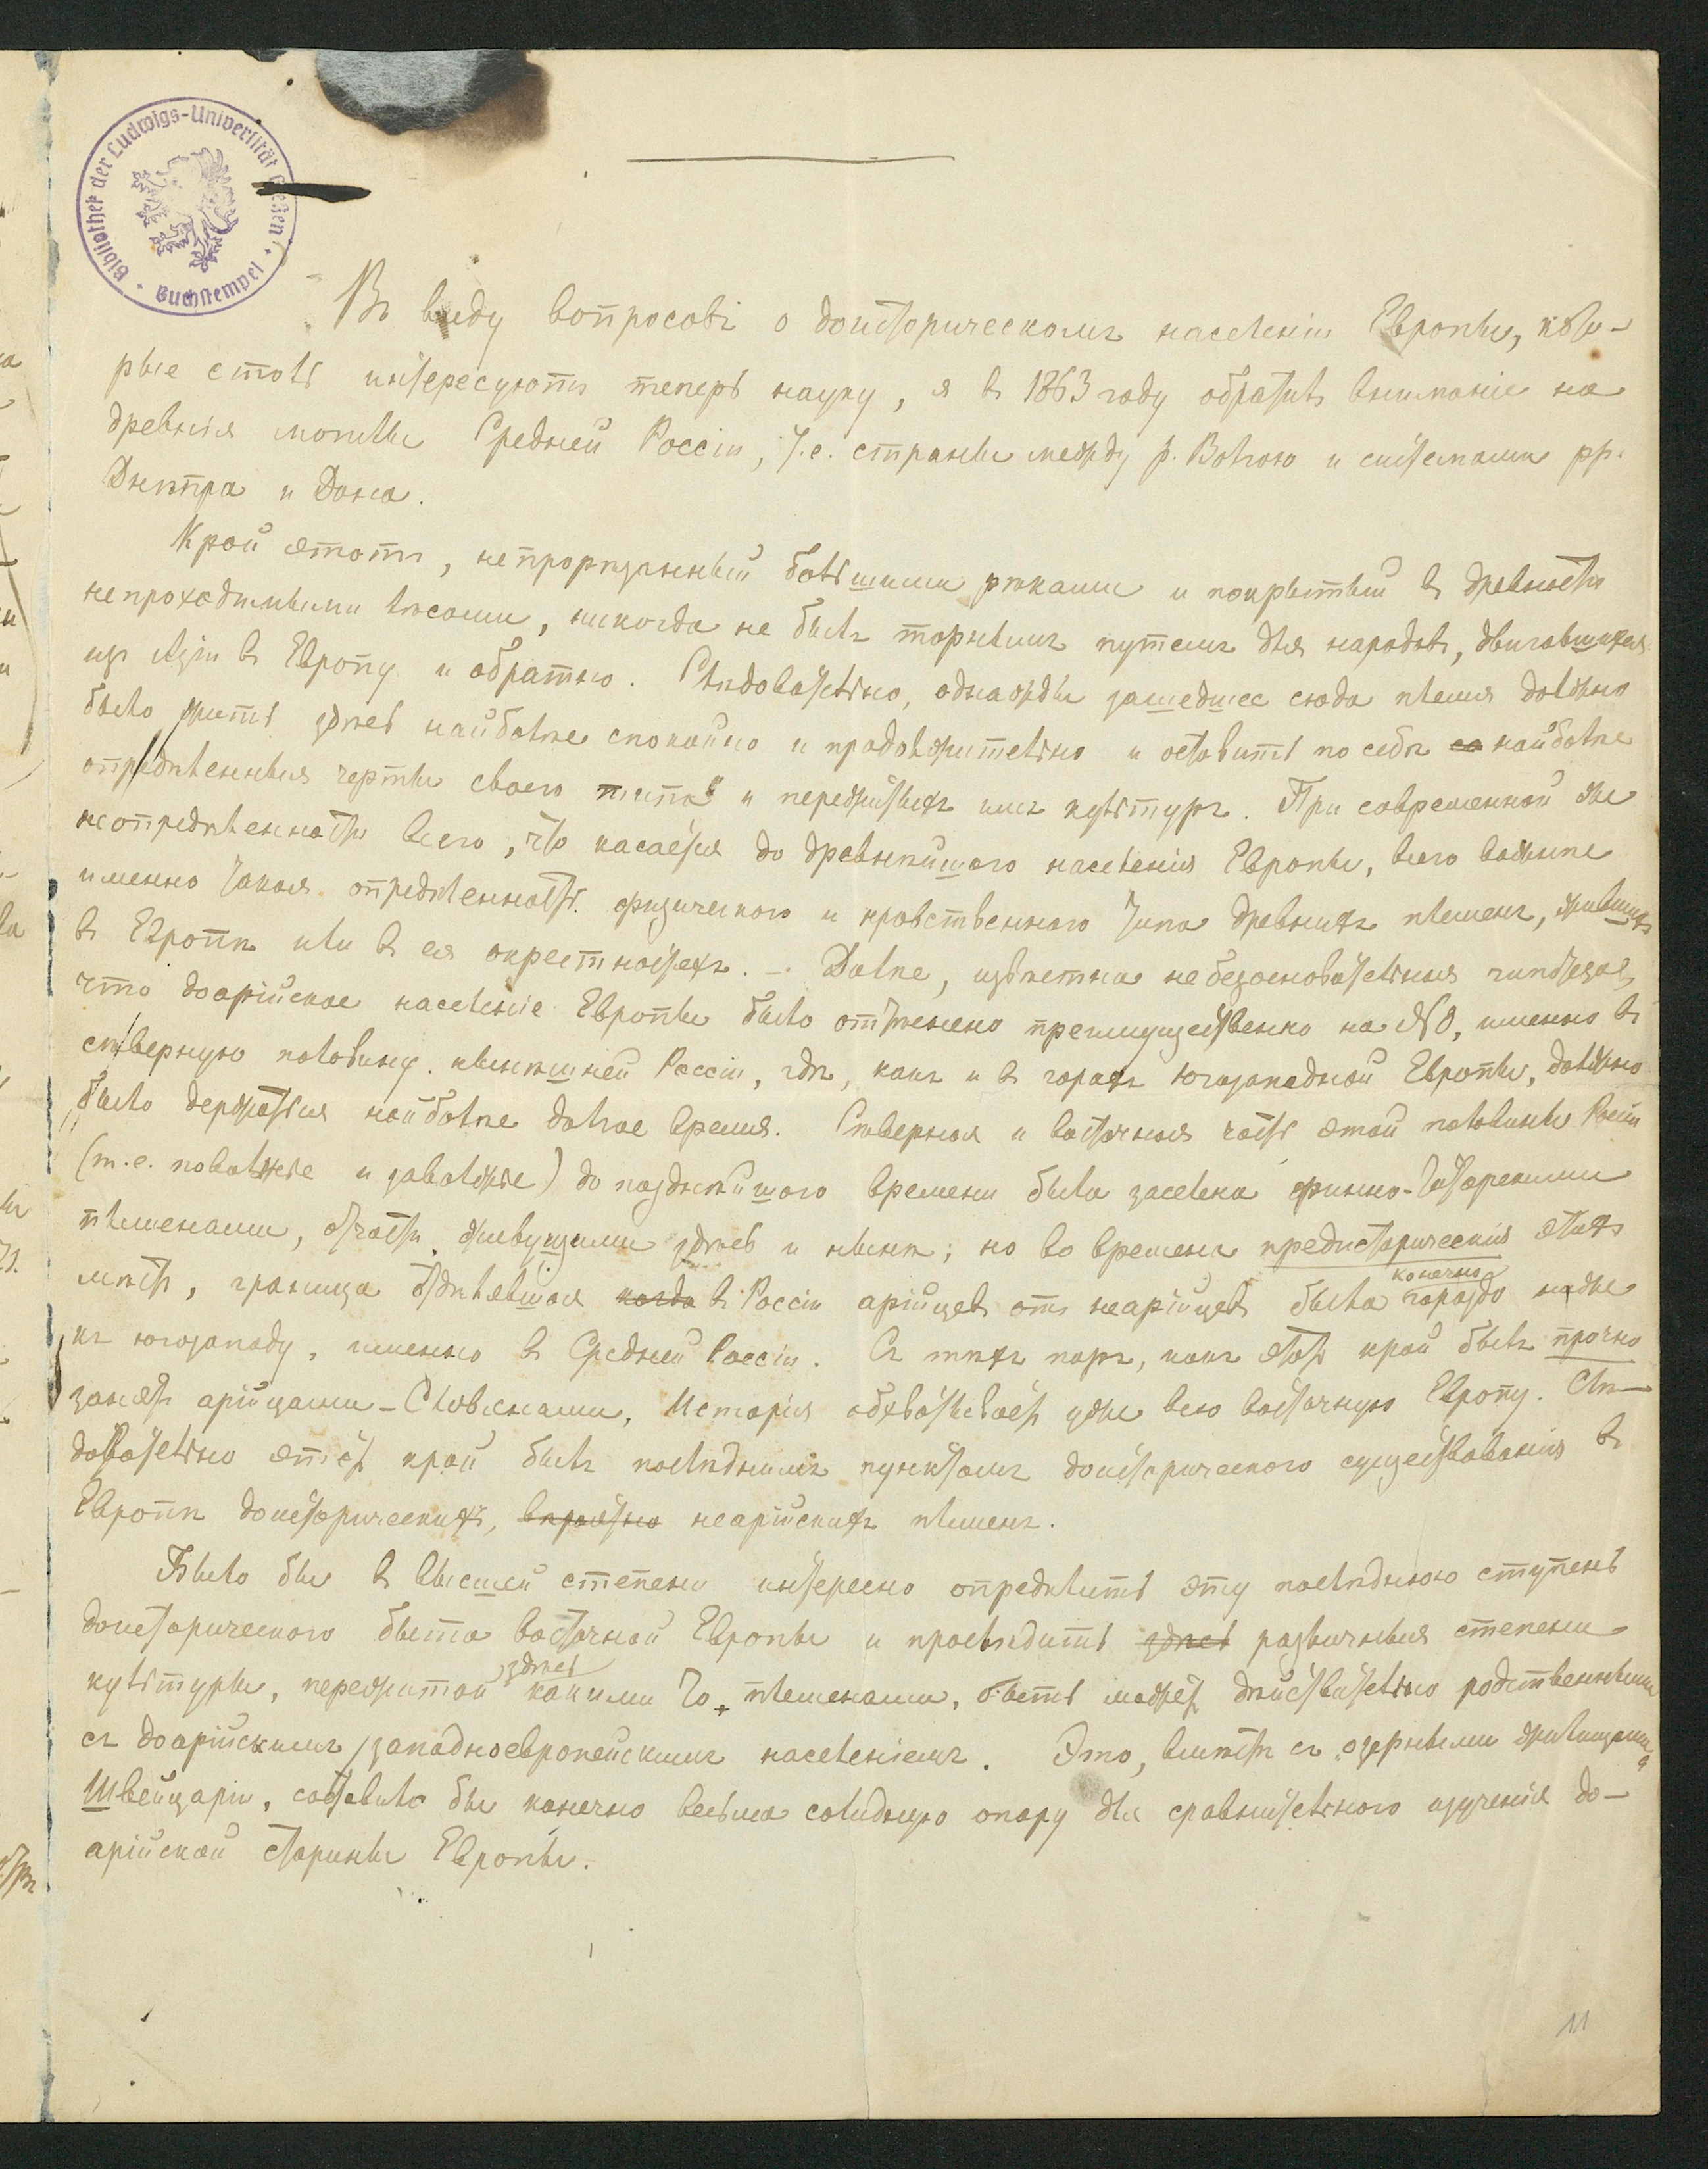 Bibliothek der Ludwigs-Universität Gießen · Buchstempel ·
Въ виду вопросовъ о доисторическомъ населеніи Европы, кото-
рые столь интересуютъ теперь науку, я въ 1863 году обратилъ вниманіе на
древнія могилы Средней Россіи, т.е. страны между р. Волгою и системами рр.
Днѣпра и Дона.
Край этотъ, непрорѣзанный большими рѣками и покрытый въ древности
непроходимыми лѣсами, никогда не былъ торнымъ путемъ для народовъ, двигавшихся
изъ Азіи въ Европу и обратно. Слѣдовательно, однажды зашедшее сюда племя должно
было жить здѣсь наиболѣе спокойно и продолжительно и оставить по себѣ наиболѣе
опредѣленныя черты своего типа и пережитыхъ имъ культуръ. При современной же
неопредѣленности всего, что касается до древнѣйшаго населенія Европы, всего важнѣе
именно такая опредѣленность физическаго и нравственнаго типа древнихъ племенъ, жившихъ
въ Европѣ или въ ея окрестностяхъ. — Далѣе, извѣстна небезосновательная гипотеза,
что доарійское населеніе Европы было оттѣснено преимущественно на NO, именно въ
сѣверную половину нынѣшней Россіи, гдѣ, какъ и въ горахъ югозападной Европы, должно
было держаться наиболѣе долгое время. Сѣверная и восточная часть этой половины Россіи
(т.е. поволжье и заволжье) до позднѣйшаго времени была заселена финно-татарскими
племенами, отчасти живущими здѣсь и нынѣ; но во времена предисторическія этихъ
мѣстъ, граница отдѣлявшая когда въ Россіи арійцевъ отъ неарійцевъ была гораздо конечно ниже
къ югозападу, именно въ Средней Россіи. Съ тѣхъ поръ, какъ этотъ край былъ прочно
занятъ арійцами-Словенами, Исторія обхватываетъ уже всю восточную Европу. Слѣ-
довательно этотъ край былъ послѣднимъ пунктомъ доисторическаго существованія въ
Европѣ доисторическихъ, вѣроятно неарійскихъ племенъ.
Было бы въ высшей степени интересно опредѣлить эту послѣднюю ступень
доисторическаго быта восточной Европы и прослѣдить здѣсь различныя степени
культуры, пережитой здѣсь какими то племенами, быть можетъ дѣйствительно родственными
съ доарійскимъ западноевропейскимъ населеніемъ. Это, вмѣстѣ съ „озерными жилищами“
Швейцаріи, составило бы конечно весьма солидную опору для сравнительнаго изученія до-
арійской старины Европы.
11